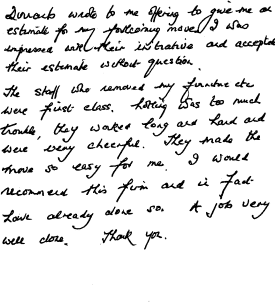 wrote to me offering to give me an
estimate for my forthcoming move, I was
impressed with their initiative and accepted
their estimate without question.
The staff who removed my furniture etc
were first class. Nothing was to much
trouble, they worked long and hard and
were very cheerful. They made the
move so easy for me. I would
recommend this firm and in fact
have already done so. A job very
well done. Thank you.